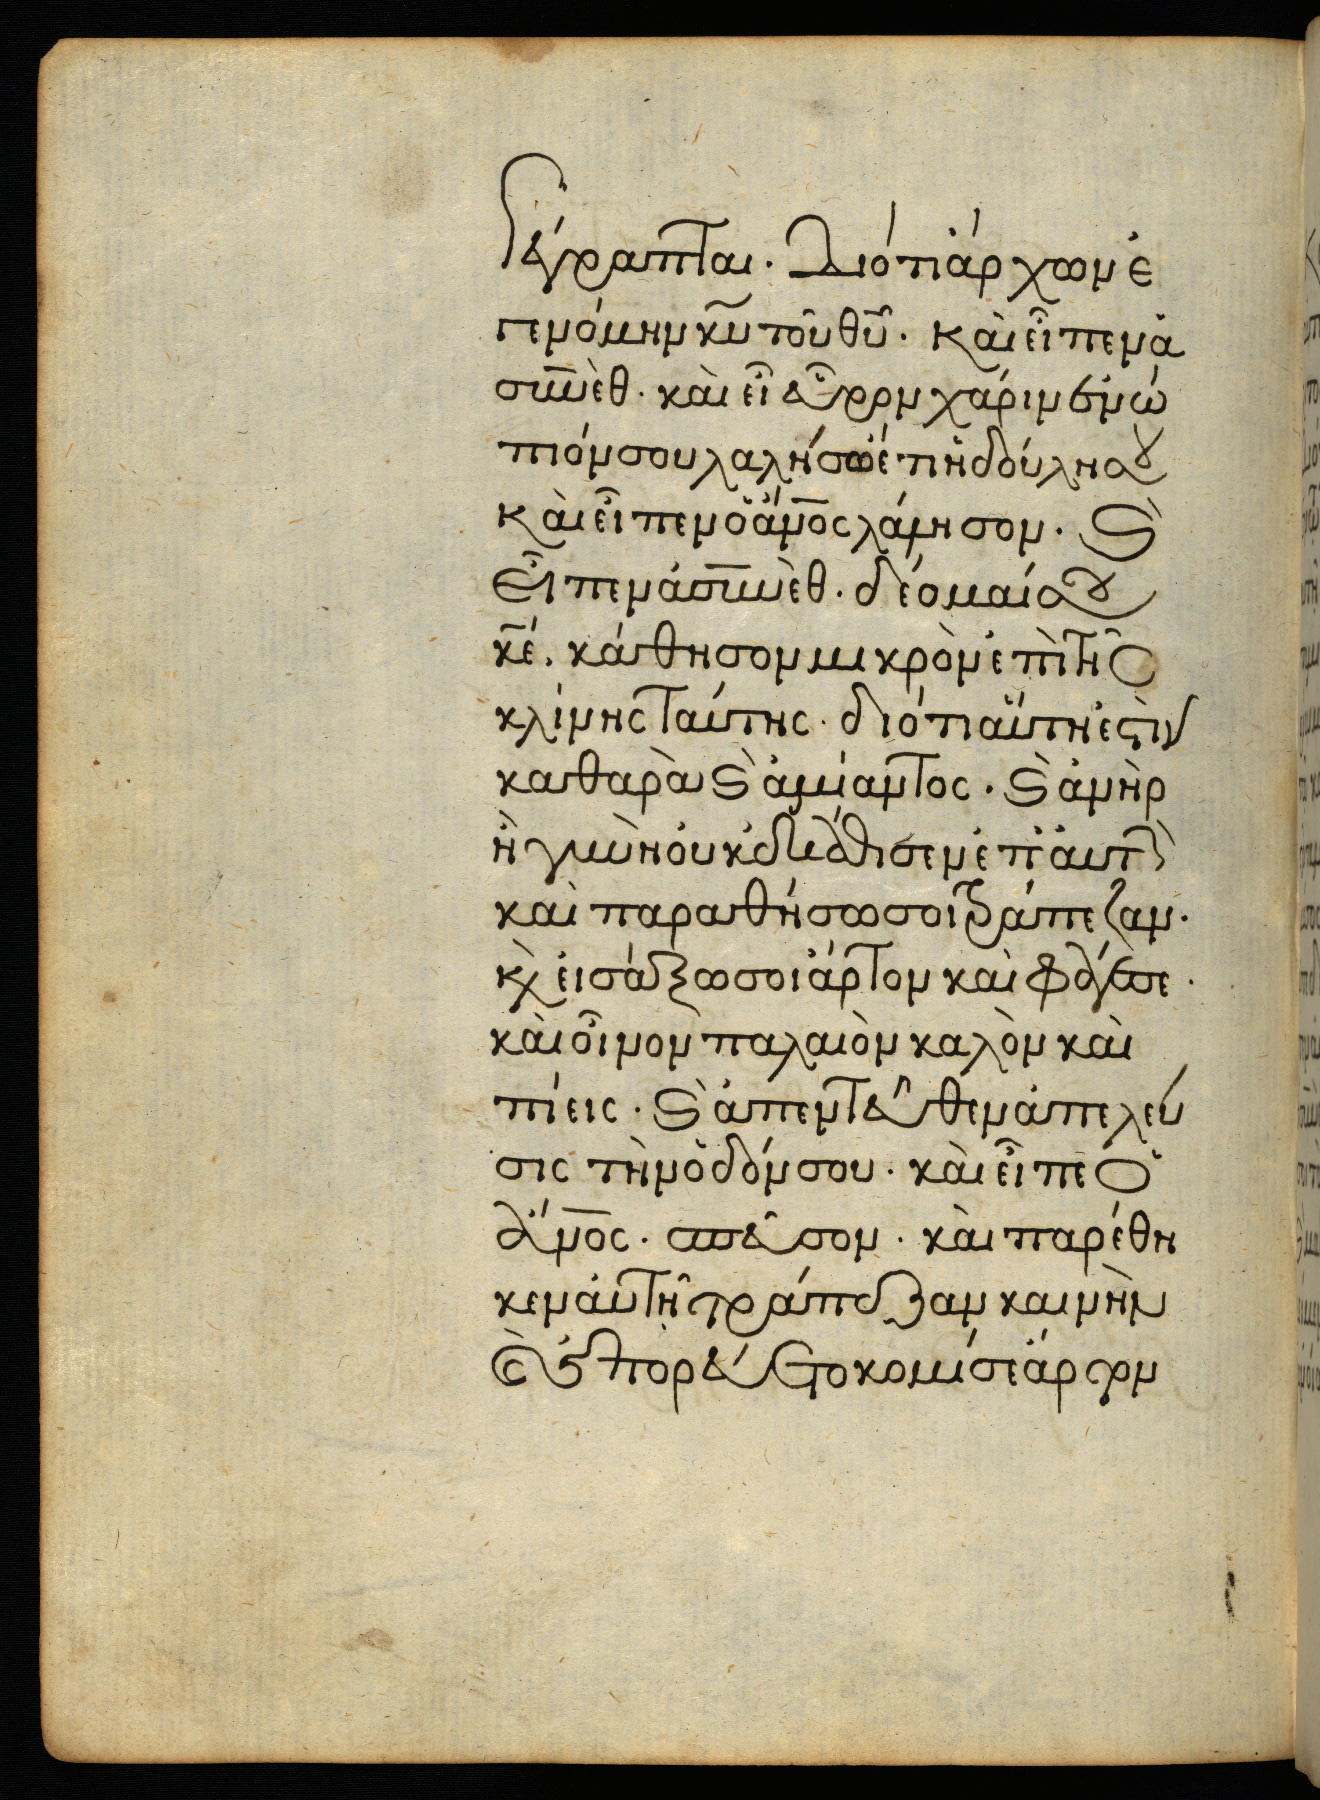 Γέγραπται· διότι ἄρχων ἐ
γενόμην κυ τοῦ θῦ· καὶ εἶπεν ἀ
σινὲθ· καὶ εἰ εὗρον χάριν ἐνώ
πιόν σου λαλήσω ἔτι ἡ δούλη σου
καὶ εἶπεν ὁ ἄνος λάλησον· καὶ
εἶπεν ἀσινὲθ· δέομαί σου
κέ· κάθησον μικρὸν ἐπὶ τῆς
κλίνης ταύτης· διότι αὕτη ἐστὶν
καθαρὰ καὶ ἀμίαντος· καὶ ἀνὴρ
ἢ γυνὴ οὐκ ἐκάθισεν ἐπ' αὐτὴν
καὶ παραθήσω σοι τράπεζαν·
καὶ εἰσάξω σοι ἄρτον καὶ φάγεσε·
καὶ οἶνον παλαιὸν καλὸν καὶ
πίεις· καὶ ἀπεντεῦθεν ἀπελεύ
σις τὴν ὁδόν σου· καὶ εἶπε ὁ
ἄνος· σπεῦσον· καὶ παρέθη
κεν αὐτῆ τράπεζαν καινὴν
καὶ ἐπορεύετο κομίσε ἄρτον